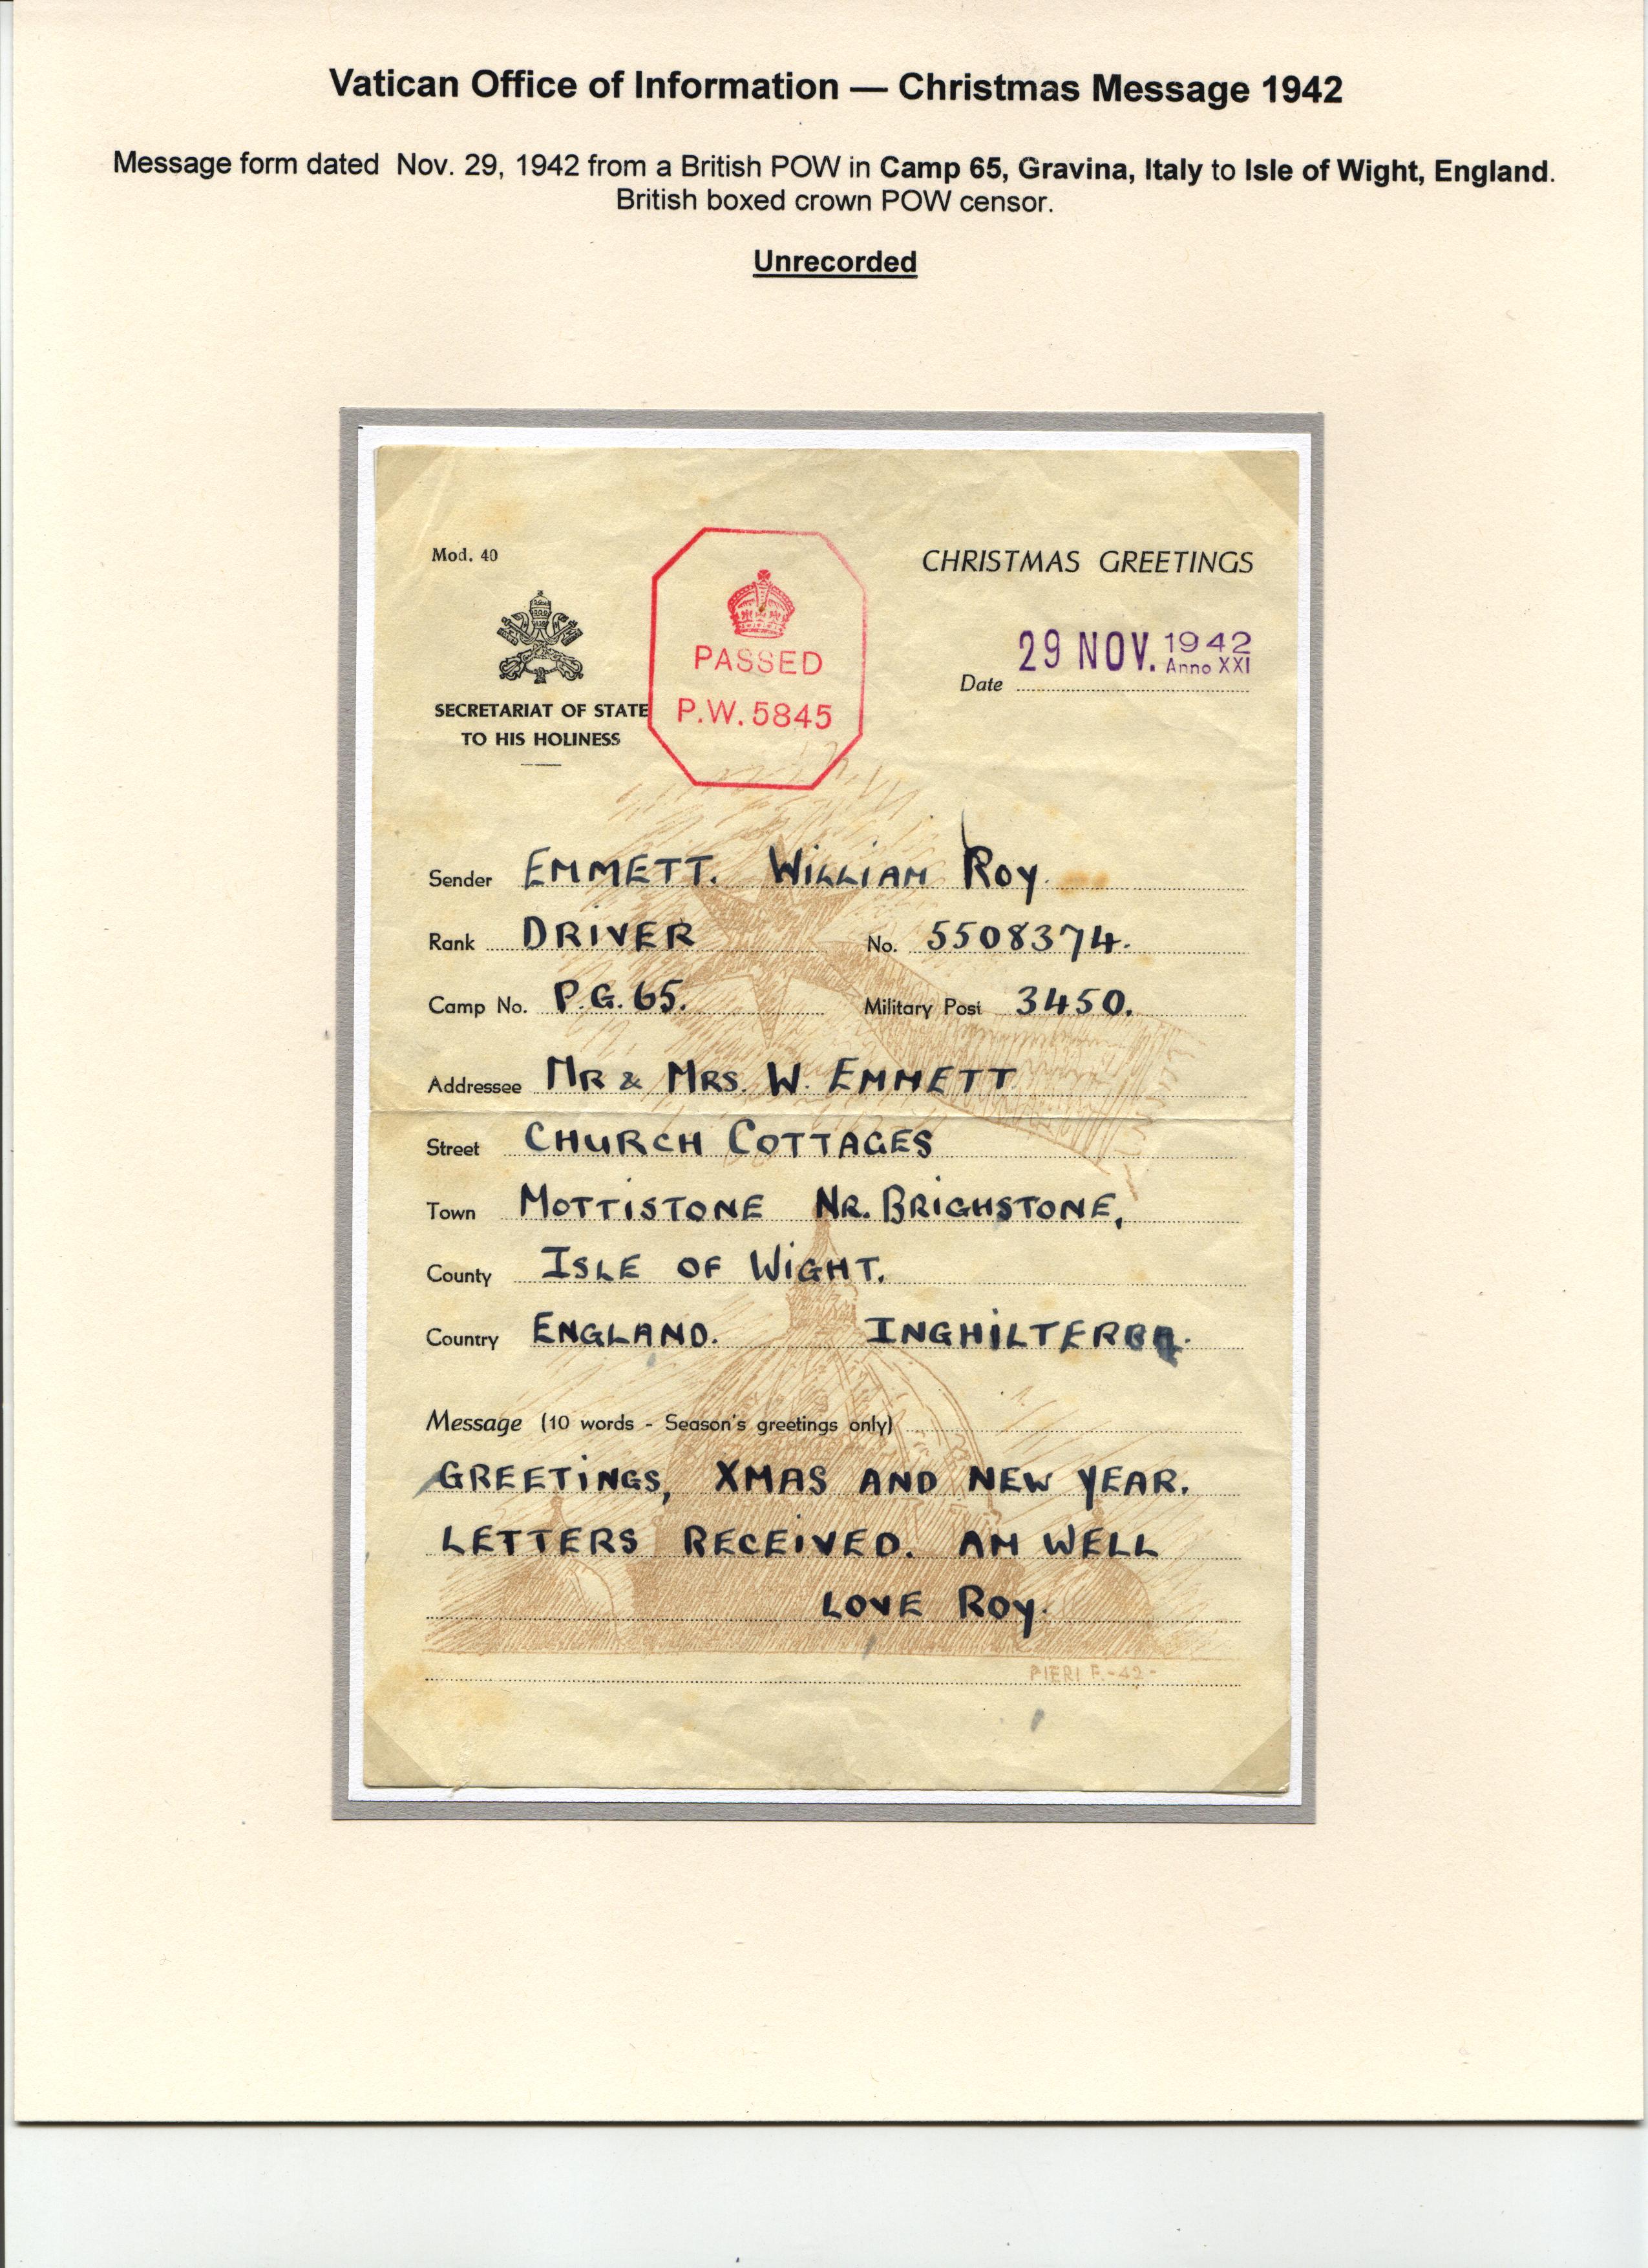 Vatican Office of Information — Christmas Message 1942
Message form dated Nov. 29, 1942 from a British POW in Camp 65, Gravina, Italy to Isle of Wight, England.
British boxed crown POW censor.
Unrecorded
Mod. 40
CHRISTMAS GREETINGS
PASSED
P.W. 5845
29 NOV. 1942
Anno XXI
Date
SECRETARIAT OF STATE
TO HIS HOLINESS
Sender EMMETT. WILLIAM ROY.
Rank DRIVER No. 5508374.
Camp No. P.G. 65. Military Post 3450.
Addressee MR & MRS. W. EMMETT
Street CHURCH COTTAGES
Town MOTTISTONE NR. BRIGHSTONE,
County ISLE OF WIGHT.
Country ENGLAND. INGHILTERRA.
Message (10 words - Season's greetings only)
GREETINGS, XMAS AND NEW YEAR.
LETTERS RECEIVED. AM WELL
LOVE ROY.
PIERI F. -42-